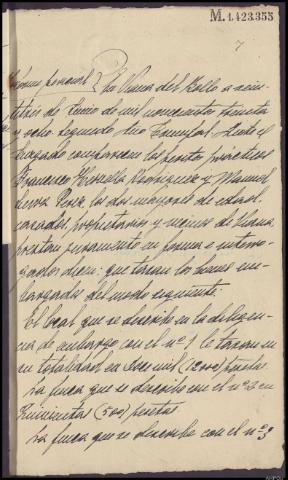 M.1.423.355
7
En Viana del Bollo a vein-
titres de Junio de mil novecientos treinta
y ocho Segundo Año Triunfal. Ante el
Juzgado comparecen los peritos prácticos
Francisco y Manuel
los dos mayores de edad,
casados, propietarios y vecinos de Viana,
prestan juramento en forma e interro-
gados dicen: que tasan los bienes em-
bargados del modo siguiente:
El local que se describe en la diligen-
cia de embargo con el nº 1 le tasan en
su totalidad, en doce mil (12000) pesetas.
La finca que se describe con el nº 2 en
quinientas (500) pesetas.
La finca que se describe con el nº 3